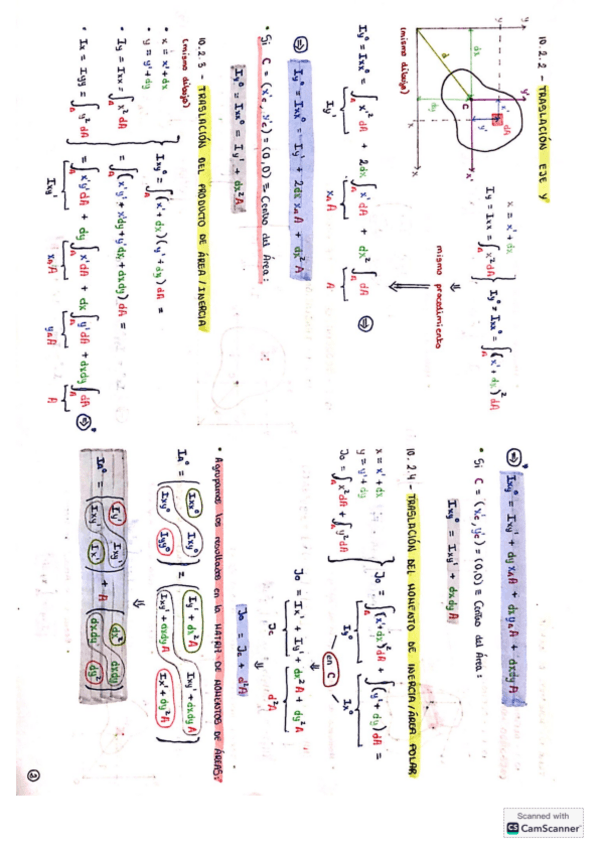 10.2.2 - TRASLACIÓN EJE Y
y
y'
dx
x'
dA
y'
d
C
dy
x'
x
(mismo dibujo)
x = x' + dx
Iy = Ixx = ∫A x² dA
Iy⁰ = Ixx⁰ = ∫A (x' + dx)² dA
mismo procedimiento
Iy⁰ = Ixx⁰ = ∫A x'² dA + 2dx ∫A x' dA + dx² ∫A dA ⇒
Iy' xA A A
⇒ Iy⁰ = Ixx⁰ = Iy' + 2dx xA A + dx² A
• Si C = (x'c, y'c) = (0,0) ≡ Centro del Área:
Iy⁰ = Ixx⁰ = Iy' + dx² A
10.2.3 - TRASLACIÓN DEL PRODUCTO DE ÁREA/INERCIA
(mismo dibujo)
• x = x' + dx
• y = y' + dy
• Iy = Ixx = ∫A x² dA
• Ix = Iyy = ∫A y² dA
Ixy⁰ = ∫A (x' + dx)(y' + dy) dA =
= ∫A (x'y' + x'dy + y'dx + dxdy) dA =
= ∫A x'y' dA + dy ∫A x' dA + dx ∫A y' dA + dxdy ∫A dA ⇒
Ixy' xA A yA A A
⇒ Ixy⁰ = Ixy' + dy xA A + dx yA A + dxdy A
• Si C = (xc, yc) = (0,0) ≡ Centro del Área:
Ixy⁰ = Ixy' + dxdy A
10.2.4 - TRASLACIÓN DEL MOMENTO DE INERCIA/ÁREA POLAR
x = x' + dx
y = y' + dy
Jo = ∫A x² dA + ∫A y² dA
Jo = ∫A (x' + dx)² dA + ∫A (y' + dy)² dA =
Iy⁰ Ix⁰
en C
Jo = Ix' + Iy' + dx² A + dy² A
Jc d² A
Jo = Jc + d² A
• Agrupamos los resultados en la MATRIZ DE MOMENTOS DE ÁREAS:
IA⁰ = (Ixx⁰ Ixy⁰ Ixy⁰ Iyy⁰) = (Iy' + dx² A Ixy' + dxdy A Ixy' + dxdy A Ix' + dy² A)
IA⁰ = (Iy' Ixy' Ixy' Ix') + A (dx² dxdy dxdy dy²)
2
Scanned with
CS CamScanner